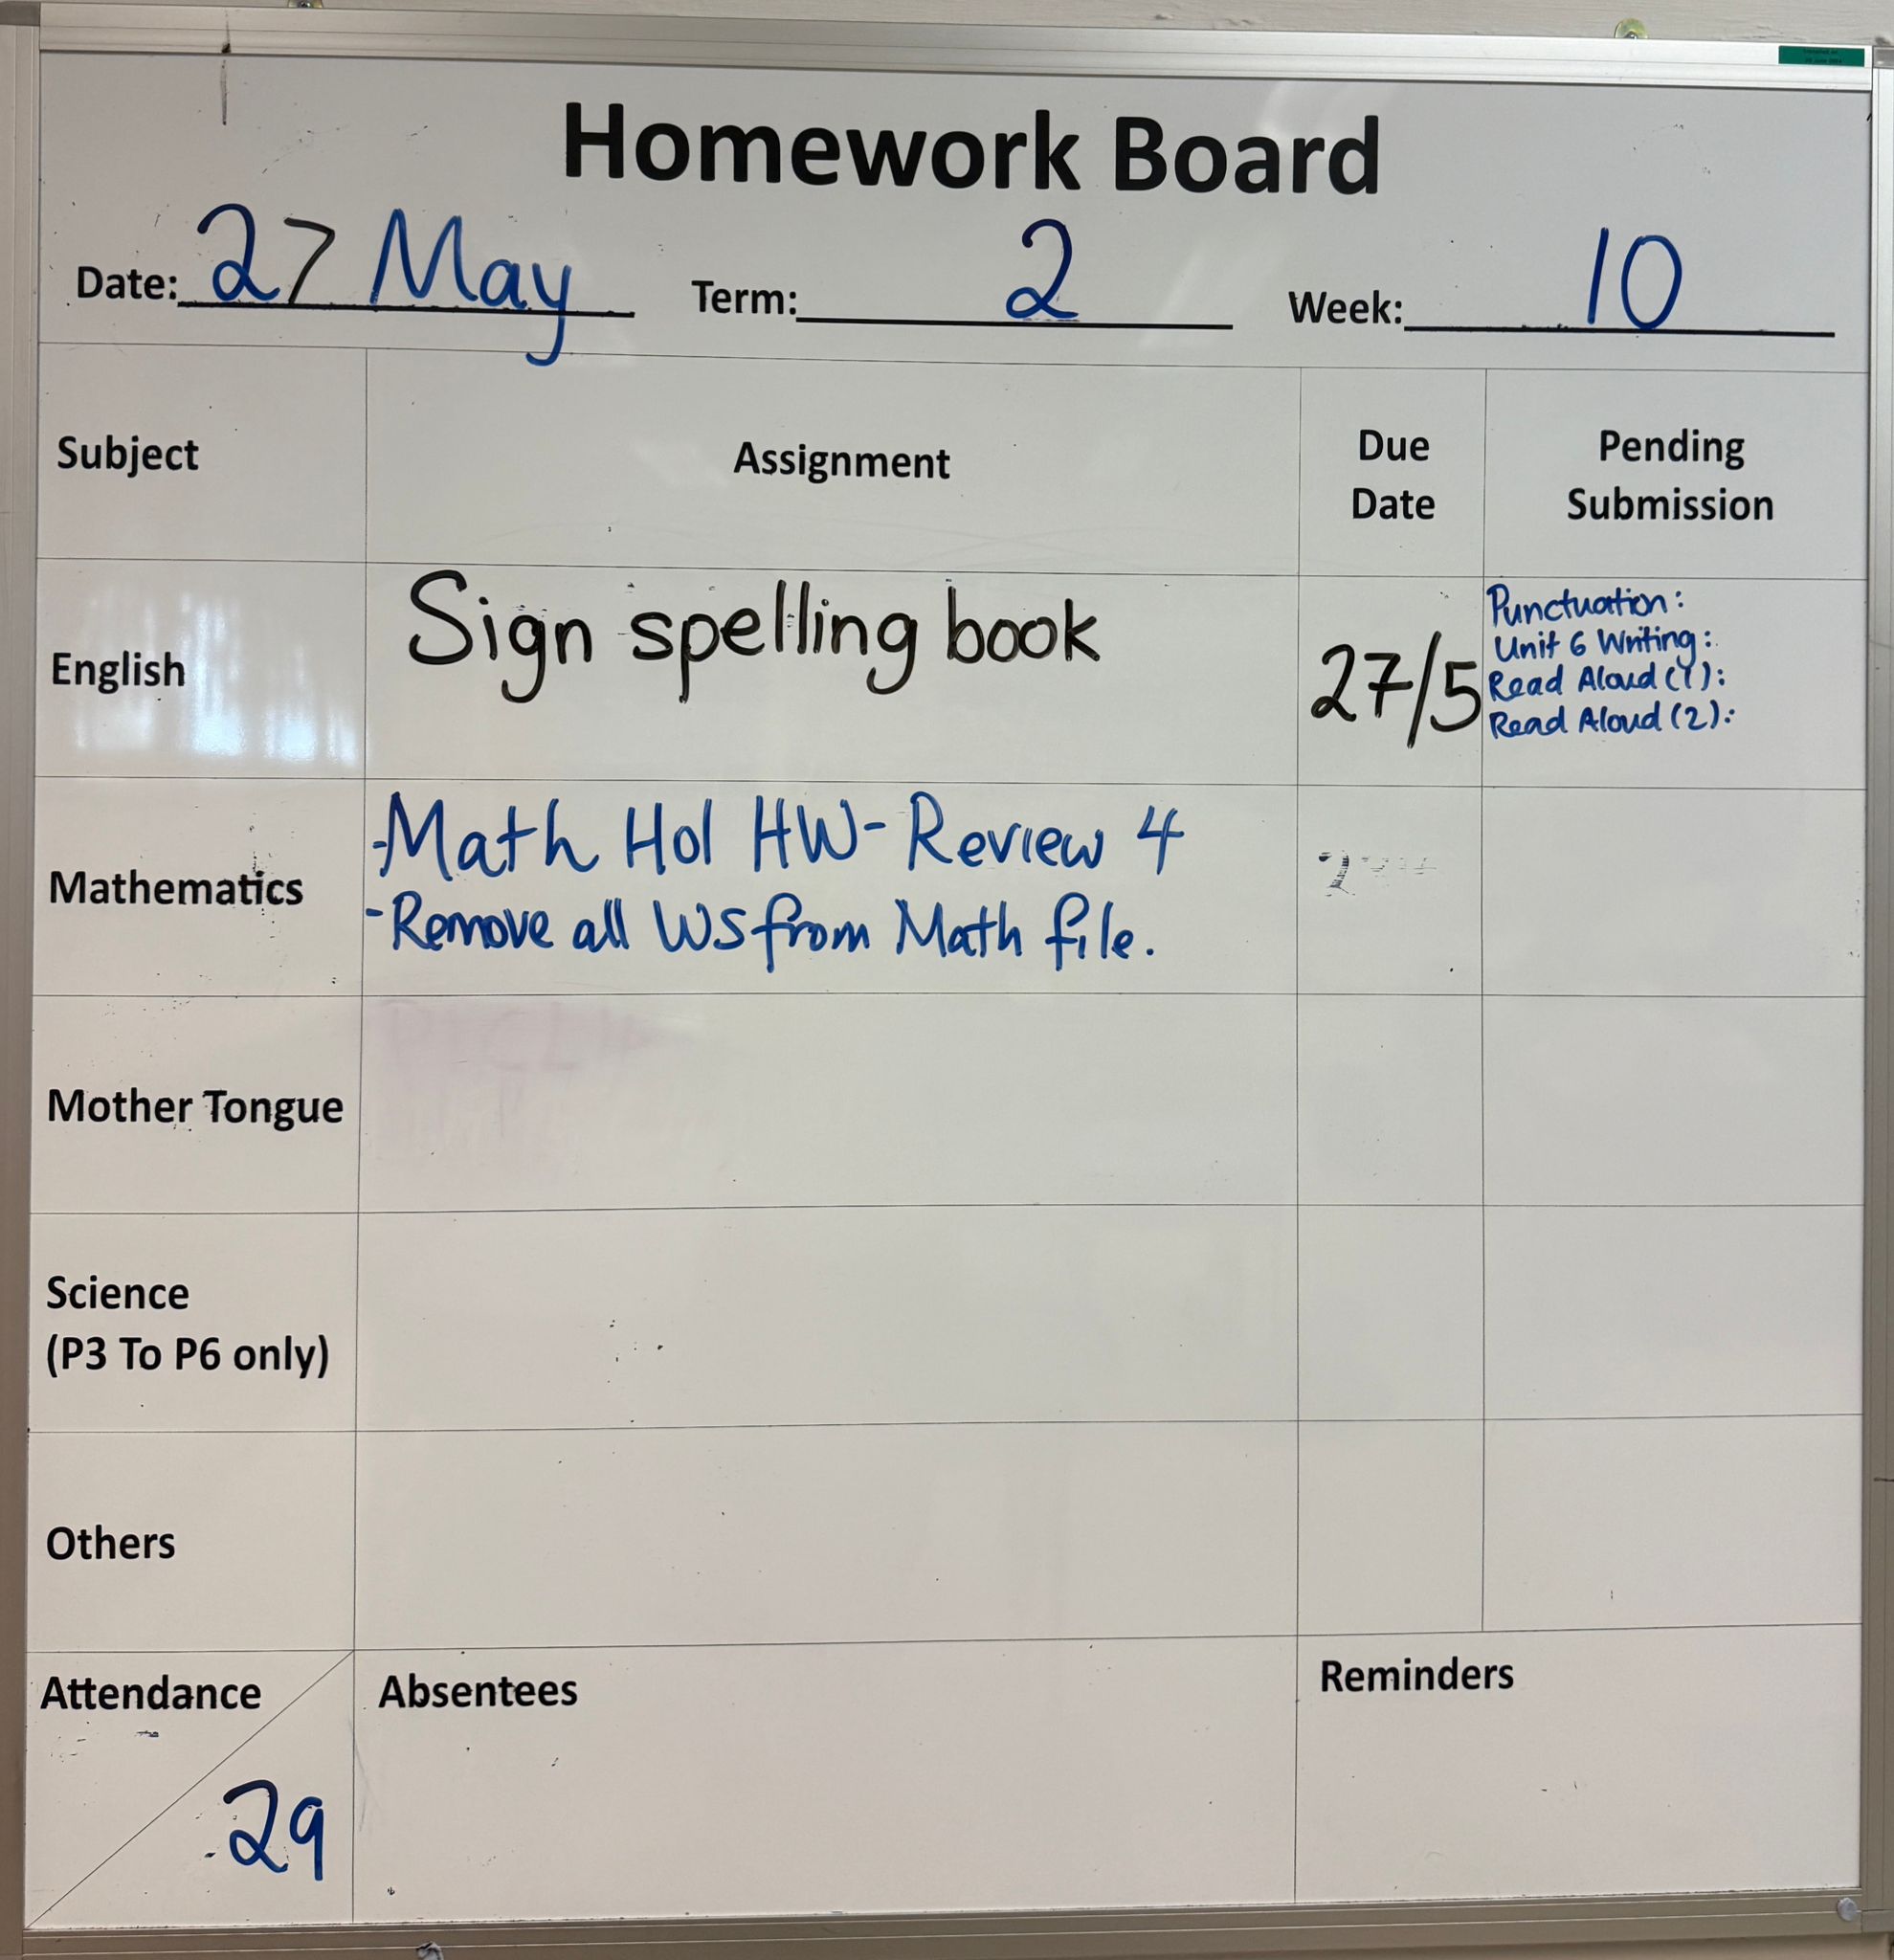 Homework Board
Date: 27 May Term: 2 Week: 10
Subject Assignment Due Date Pending Submission
English Sign spelling book 27/5 Punctuation:
Unit 6 Writing:
Read Aloud (1):
Read Aloud (2):
Mathematics -Math Hol HW- Review 4
-Remove all WS from Math file.
Mother Tongue
Science
(P3 To P6 only)
Others
Attendance Absentees Reminders
29